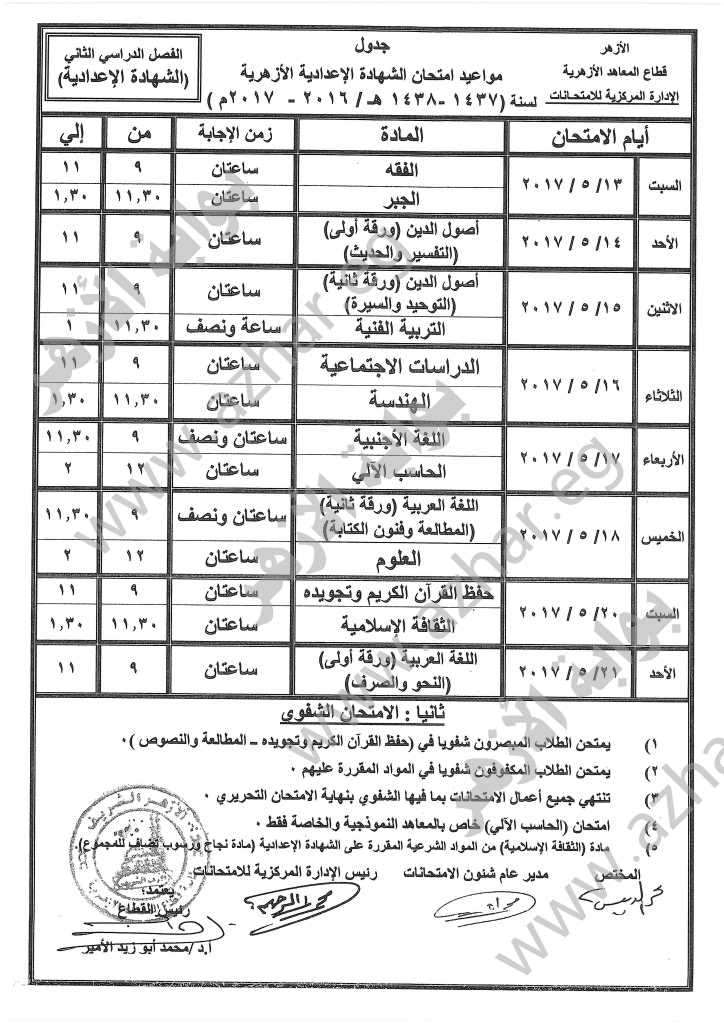 الأزهر
قطاع المعاهد الأزهرية
الإدارة المركزية للامتحانات
جدول
مواعيد امتحان الشهادة الإعدادية الأزهرية
لسنة (١٤٣٧ -١٤٣٨ هـ / ٢٠١٦ - ٢٠١٧م )
الفصل الدراسي الثاني
(الشهادة الإعدادية)
أيام الامتحان المادة زمن الإجابة من إلي
السبت ١٣/ ٥ / ٢٠١٧ الفقه ساعتان ٩ ١١
الجبر ساعتان ١١,٣٠ ١,٣٠
الأحد ١٤/ ٥ / ٢٠١٧ أصول الدين (ورقة أولى) ساعتان ٩ ١١
(التفسير والحديث)
الاثنين ١٥/ ٥ / ٢٠١٧ أصول الدين (ورقة ثانية) ساعتان ٩ ١١
(التوحيد والسيرة)
التربية الفنية ساعة ونصف ١١,٣٠ ١
الثلاثاء ١٦/ ٥ / ٢٠١٧ الدراسات الاجتماعية ساعتان ٩ ١١
الهندسة ساعتان ١١,٣٠ ١,٣٠
الأربعاء ١٧/ ٥ / ٢٠١٧ اللغة الأجنبية ساعتان ونصف ٩ ١١,٣٠
الحاسب الآلي ساعتان ١٢ ٢
الخميس ١٨/ ٥ / ٢٠١٧ اللغة العربية (ورقة ثانية) ساعتان ونصف ٩ ١١,٣٠
(المطالعة وفنون الكتابة)
العلوم ساعتان ١٢ ٢
السبت ٢٠/ ٥ / ٢٠١٧ حفظ القرآن الكريم وتجويده ساعتان ٩ ١١
الثقافة الإسلامية ساعتان ١١,٣٠ ١,٣٠
الأحد ٢١/ ٥ / ٢٠١٧ اللغة العربية (ورقة أولى) ساعتان ٩ ١١
(النحو والصرف)
ثانيا : الامتحان الشفوي
١) يمتحن الطلاب المبصرون شفويا في (حفظ القرآن الكريم وتجويده – المطالعة والنصوص ) ٠
٢) يمتحن الطلاب المكفوفون شفويا في المواد المقررة عليهم ٠
٣) تنتهي جميع أعمال الامتحانات بما فيها الشفوي بنهاية الامتحان التحريري ٠
٤) امتحان (الحاسب الآلي) خاص بالمعاهد النموذجية والخاصة فقط ٠
٥) مادة (الثقافة الإسلامية) من المواد الشرعية المقررة على الشهادة الإعدادية (مادة نجاح ورسوب تضاف للمجموع)
المختص مدير عام شئون الامتحانات رئيس الإدارة المركزية للامتحانات
يعتمد؛
رئيس القطاع
أ.د/محمد أبو زيد الأمير
بوابة الأزهر
www.azhar.eg
بوابة الأزهر
www.azhar.eg
بوابة الأزهر
www.azhar.eg